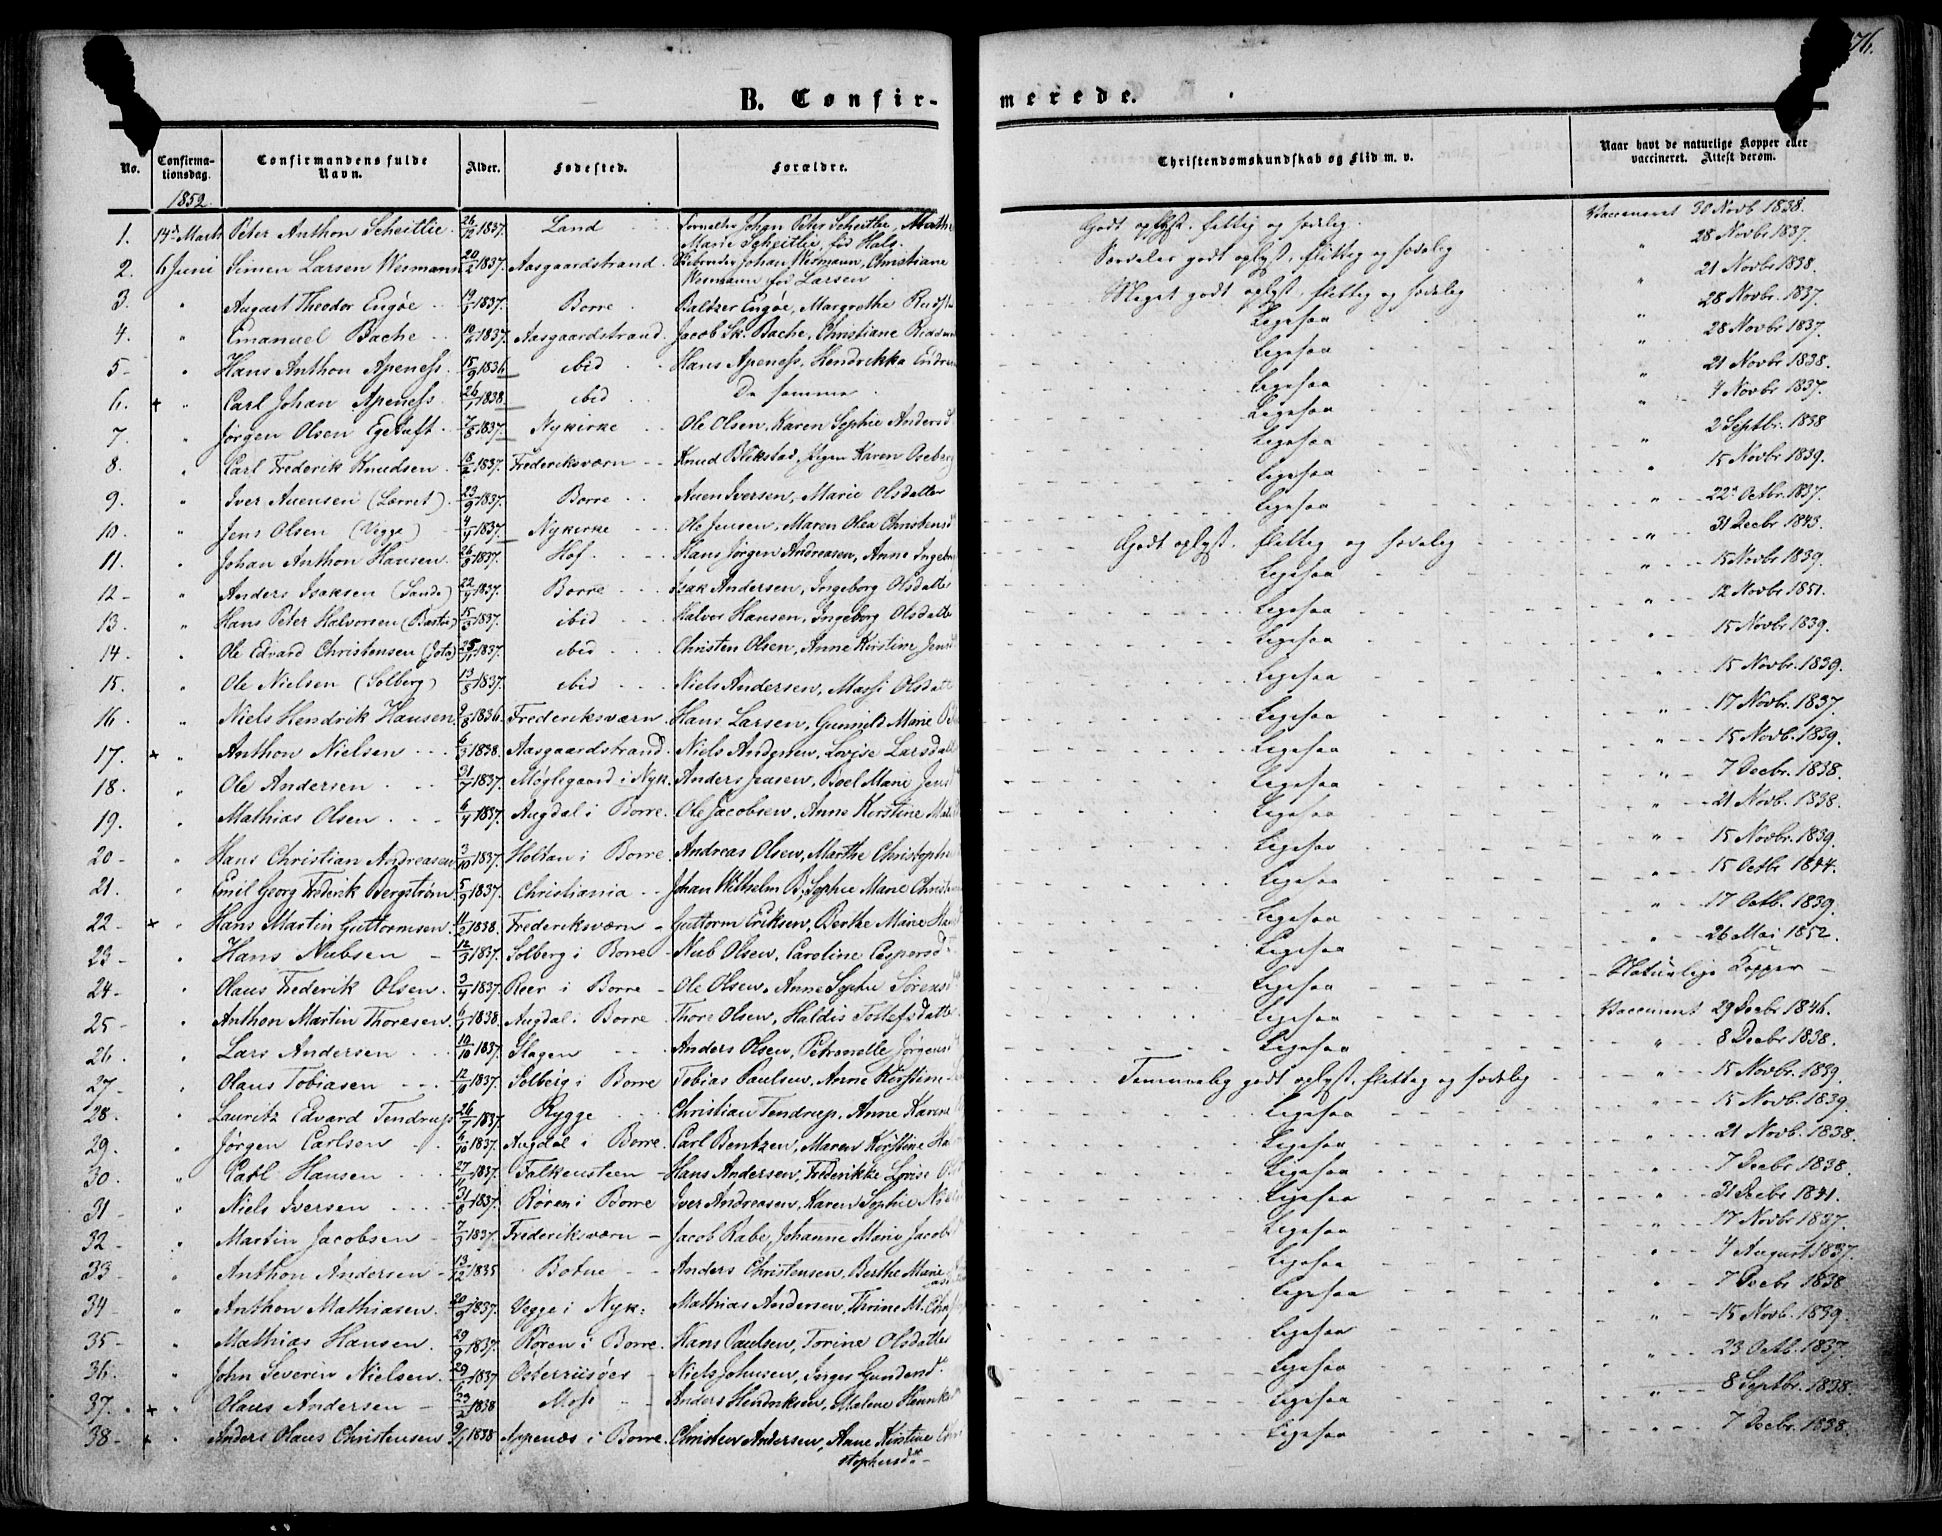 176.
B. Confir-
merede.
No.
Confirma-
tionsdag.
Confirmandens fulde
Navn.
Alder.
Fødested.
Forældre.
Christendomskundskab og Flid m. v.
Naar havt de naturlige Kopper eller
vaccineret. Attest derom.
1852
1. 14de Marts Peter Anthon Scheitlie 26/12 1837. Land Johan Peter Scheitlie, Marthe Marie Scheitlie, fød Hals. Godt oplyst. flittig og sædelig. Vaccineret 30 Novb 1838.
2. 6 Juni Simen Larsen Wermann 20/2 1837. Aasgaardstrand Johan Wermann, Christiane Wermann fød Larsen Særdeles godt oplyst, flittig og sædelig " 28 Novbr 1837.
3. " August Theodor Engøe 19/ 1837. Borre Baltzer Engøe, Margrethe Meget godt oplyst. flittig og sædelig " 21 Novbr 1838.
4. " Emanuel Bache 19/6 1837. Aasgaardstrand. Jacob Sk. Bache, Christiane Ligesaa " 28 Novbr. 1837.
5 " Hans Anthon Apeness. 15/9 1836 ibid Hans Apeness, Hendrikka Ligesaa " 28 Novbr 1837.
6. + " Carl Johan Apeness. 26/1 1838. ibid De samme Ligesaa " 21 Novbr 1838.
7. " Jørgen Olsen Egetuft 7/8 1837. Nykirke Ole Olsen, Karen Sophie Andersd Ligesaa " 4 Novbr 1837.
8. " Carl Frederik Knudsen. 18/2 1837. Frederiksværn Knud Blikstad, Karen Ligesaa " 2 Septbr. 1838
9. " Iver Auensen (Lørret) 23/9 1837. Borre Auen Iversen, Marie Olsdatter Ligesaa " 15 Novbr 1839.
10. " Jens Olsen (Vegge) 4/4 1837. Nykirke Ole Jensen, Maren Olea Christensd Ligesaa " 22 Octbr. 1837.
11. " Johan Anthon Hansen. 26/8 1837. Hof. Hans Jørgen Andreasen, Anne Ingeborg Godt oplyst. flittig og sædelig " 31 Decbr 1843.
12 " Anders Isaksen (Sande) 22/9 1837. Borre Isak Andersen, Ingeborg Olsdatter Ligesaa " 15 Novbr 1839.
13. " Hans Peter Halvorsen (Bastø) 15/5 1837. ibid Halvor Hansen, Ingeborg Olsdatter Ligesaa " 12 Novbr 1851.
14 " Ole Edvard Christensen 25/11 1837. ibid Christen Olsen, Anne Kirstine Jens Ligesaa " 15 Novbr. 1839.
15. " Ole Nielsen (Solberg) 13/5 1837. ibid Niels Andersen, Olsdatt Ligesaa " 15 Novbr. 1839.
16 " Niels Hendrik Hansen 9/8 1836. Frederiksværn Hans Larsen, Gunnild Marie Ligesaa " 17 Novbr. 1837.
17. + " Anthon Nielsen 6/3 1838. Aasgaardstrand Niels Andersen, Lovise Larsdatt Ligesaa " 15 Novb. 1839.
18. " Ole Andersen 31/7 1837. Møglegaard i Nyk. Anders Jensen, Boel Marie Jens Ligesaa " 7 Decbr. 1838.
19. " Mathias Olsen 6/4 1837. Augdal i Borre. Ole Jacobsen, Anne Kirstine Ligesaa " 21 Novb. 1838.
20 " Hans Christian Andreasen 3/10 1837. Holtan i Borre Andreas Olsen, Marthe Christophe Ligesaa " 15 Novbr. 1839.
21. " Emil Georg Frederik Bergstrøm. 5/9 1837. Christiania Johan Wilhelm B, Sophie Marie Christ Ligesaa " 15 Octbr 1844.
22 + " Hans Martin Guttormsen. 11/2 1838. Frederiksværn Guttorm Eriksen, Berthe Marie Ligesaa " 17 Octb. 1839.
23 " Hans Nubsen 12/3 1837. Solberg i Borre Nub Olsen, Caroline Caspersd Ligesaa " 26 Mai 1852.
24 " Olaus Frederik Olsen. 3/4 1837. Reer i Borre Ole Olsen, Anne Sophie Sørensd Ligesaa Naturlige Kopper
25 " Anthon Martin Thoresen. 6/1 1838. Augdal i Borre Thore Olsen, Haldis Tostefsdatter Ligesaa Vaccineret 29 Decbr 1846.
26. " Lars Andersen 19/10 1837. Slagen Anders Olsen, Petronelle Jørgens Ligesaa " 8 Decbr 1838.
27 " Olaus Tobiasen 12/8 1837. Solberg i Borre Tobias Paulsen, Anne Kirstine Temmelig godt oplyst, flittig og sædelig " 15 Novbr. 1839.
28. " Lauritz Edvard Tendrup 26/7 1837. Rygge Christian Tendrup, Anne Karene Ligesaa " 15 Novb. 1839.
29. " Jørgen Carlsen 6/10 1837. Augdal i Borre. Carl Bentzen, Maren Kirstine Ligesaa " 21 Novb. 1838.
30. " Carl Hansen 27/11 1837. Falkensteen Hans Andersen, Frederikke Lovise Ligesaa " 7 Decbr 1838.
31 " Niels Iversen 31/8 1837. Røren i Borre Iver Andreasen, Karen Sophie Ligesaa " 31 Decbr 1841.
32 " Martin Jacobsen 7/9 1837. Frederiksværn Jacob Rabe, Johanne Marie Jacobs Ligesaa " 17 Novbr 1837.
33 " Anthon Andersen 13/12 1835 Botne Anders Christensen, Berthe Marie Ligesaa " 4 August 1837.
34 " Anthon Mathiasen. 20/9 1837. Vegge i Nyk: Mathias Andersen, Thrine M. Ligesaa " 7 Decbr 1838
35 " Mathias Hansen. 29/9 1837. Røren i Borre. Hans Paulsen, Torine Olsdatter Ligesaa " 15 Novb. 1839.
36. " John Severin Nielsen. 29/6 1837 Osterriisøer Niels Johnsen, Inger Gundersd. Ligesaa " 23 Octb. 1837
37. + " Olaus Andersen 23/2 1838 Moss Anders Hendriksen, Malene Henriks Ligesaa " 8 Septbr. 1838.
38 + " Anders Olaus Christensen 9/1 1838 Appenæs i Borre. Christen Andersen, Anne Kirstine Chri- stophersd. Ligesaa " 7 Decbr. 1838.